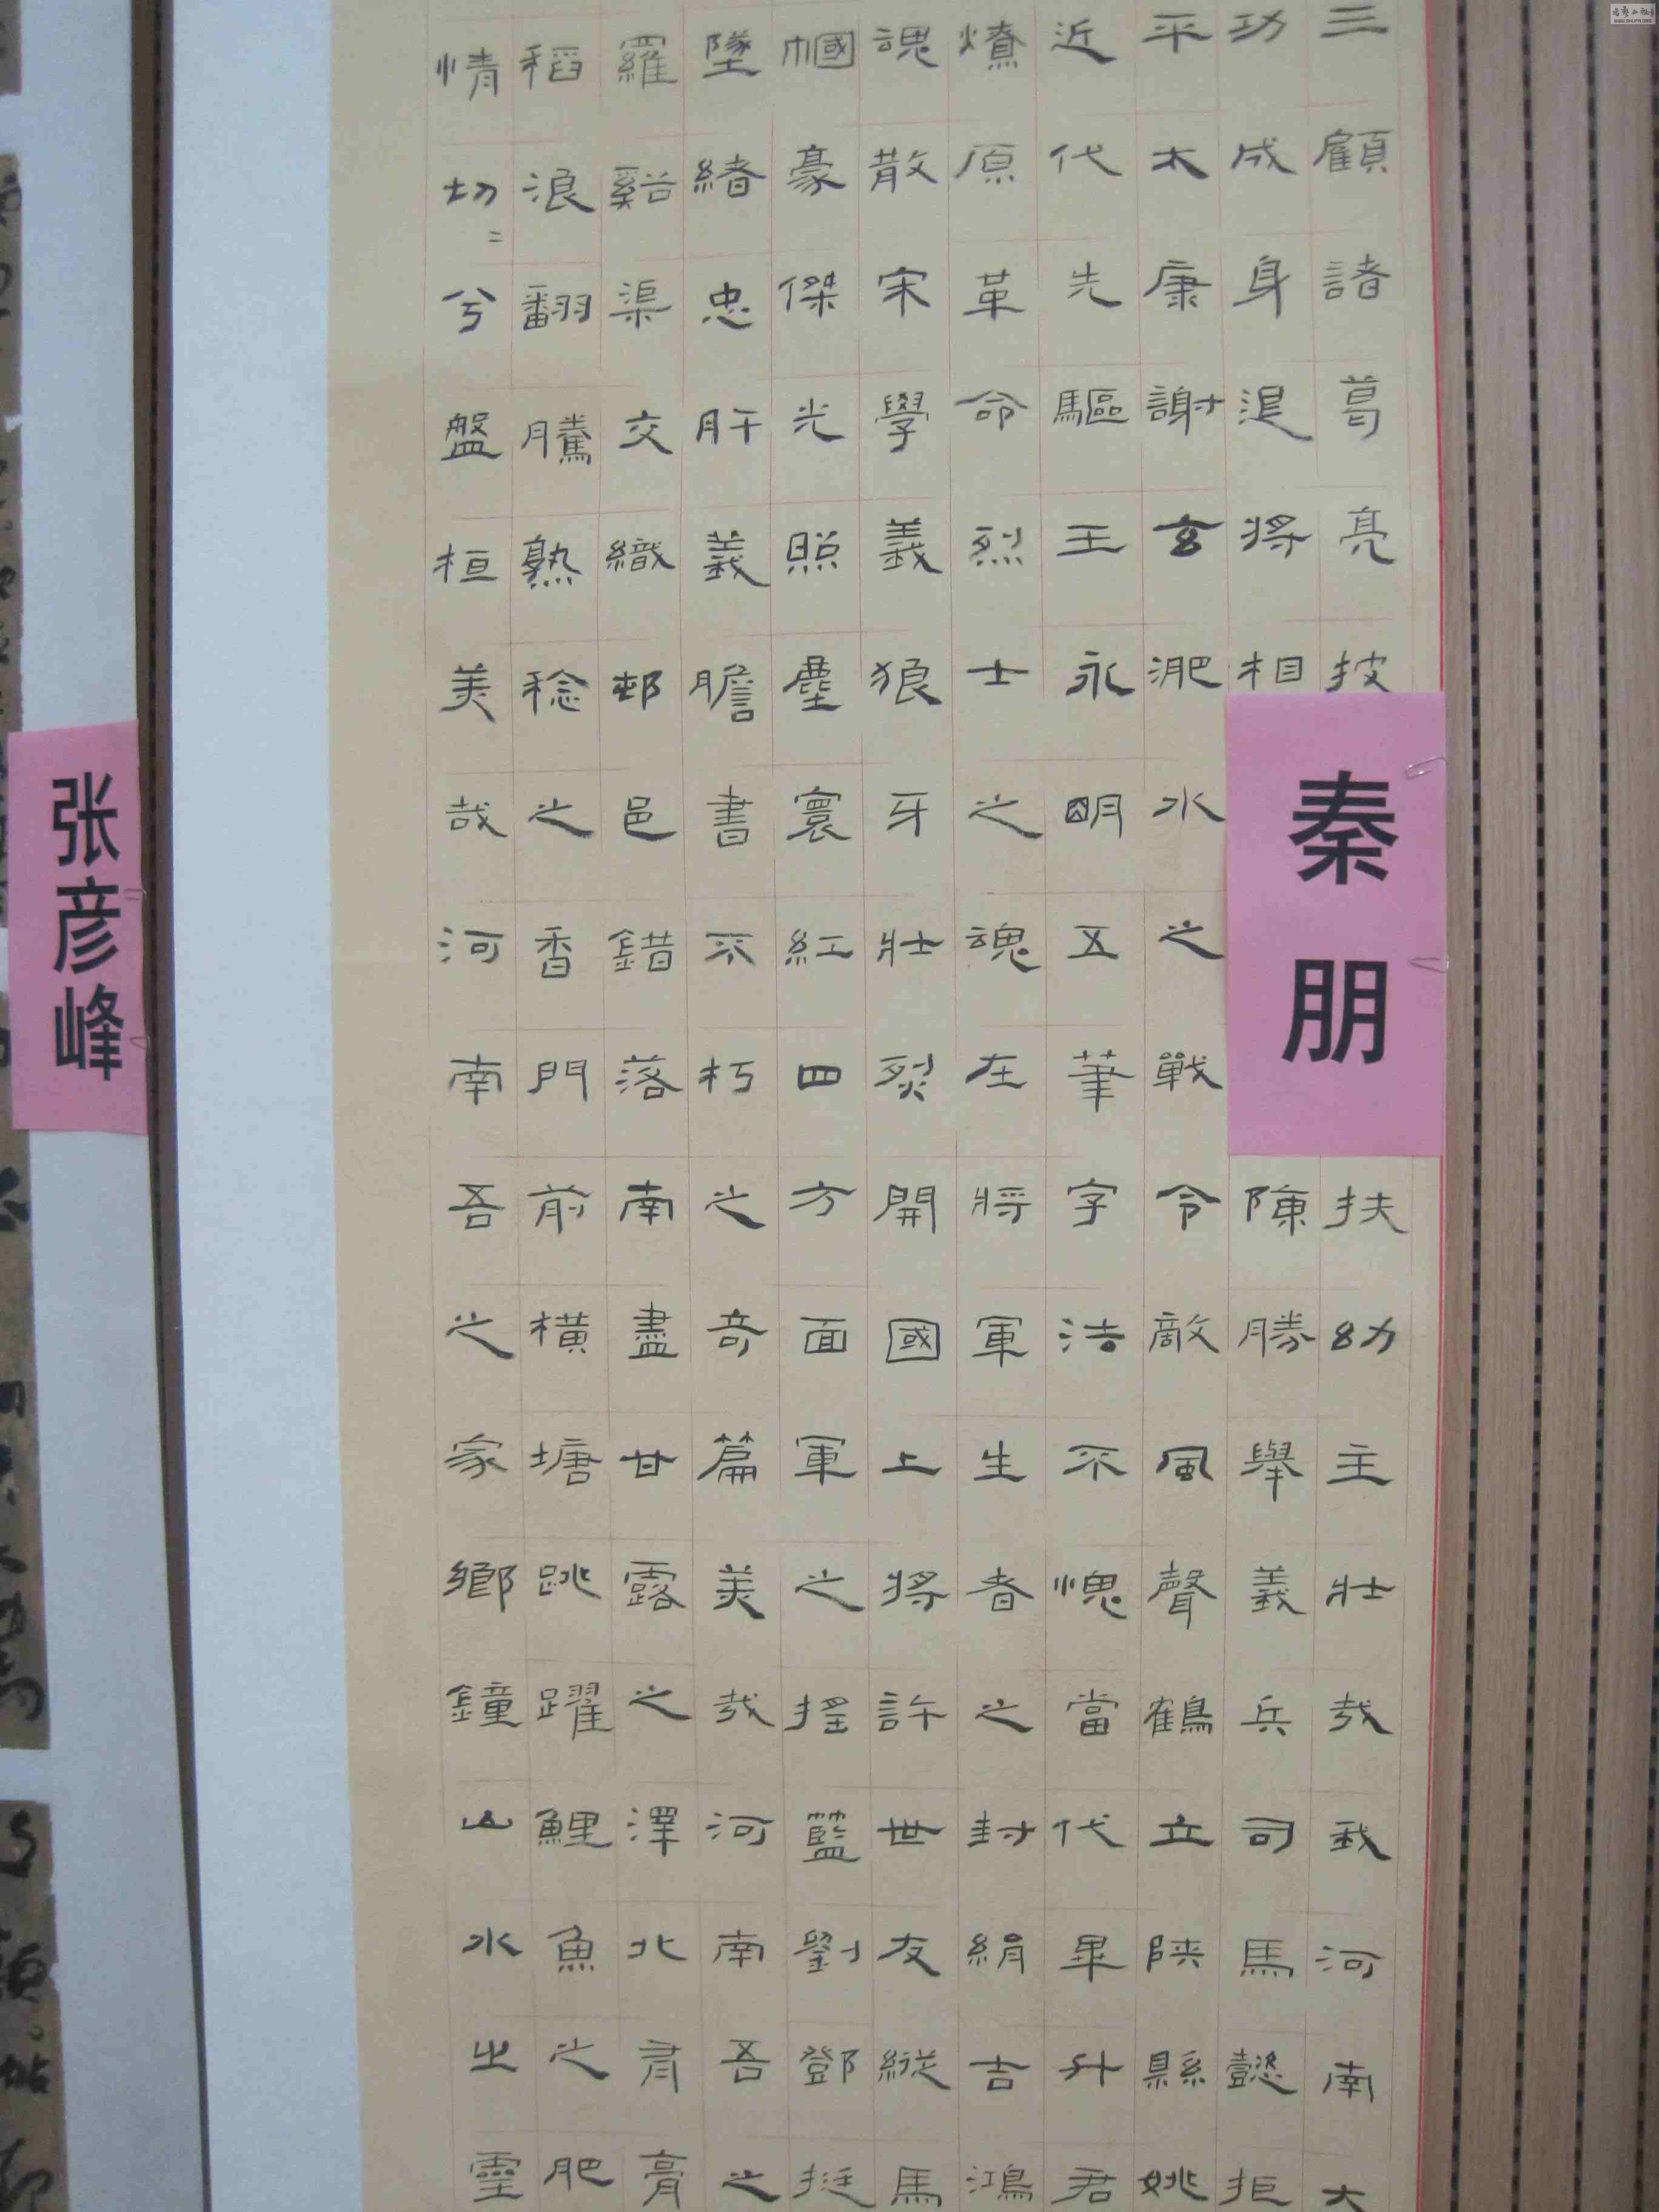 三顧諸葛亮技扶幼主壯哉我河南大
功成身退將相陳勝舉義兵司馬懿拒
平太康謝玄淝水之戰令敵風聲鶴立陝縣姚
近代先驅王永明五筆字浩不愧當代畢升君
燎原革命烈士之魂在將軍生者之封絹吉鴻
魂散宋學義狼牙壯烈開國上將許世友縱馬
幗豪傑光照塵寰紅四方面軍之搖籃劉鄧挺
墜緒忠肝義膽書不朽之奇篇美哉河南吾之
羅谿渠交織邨邑錯落南盡甘露之澤北肅膏
稻浪翻騰熟稔之香門前橫塘跳躍鯉魚之肥
情切二兮盤桓美哉河南吾之家鄉鐘山水之靈
秦朋
张彦峰
WWW.SHUFA.ORG